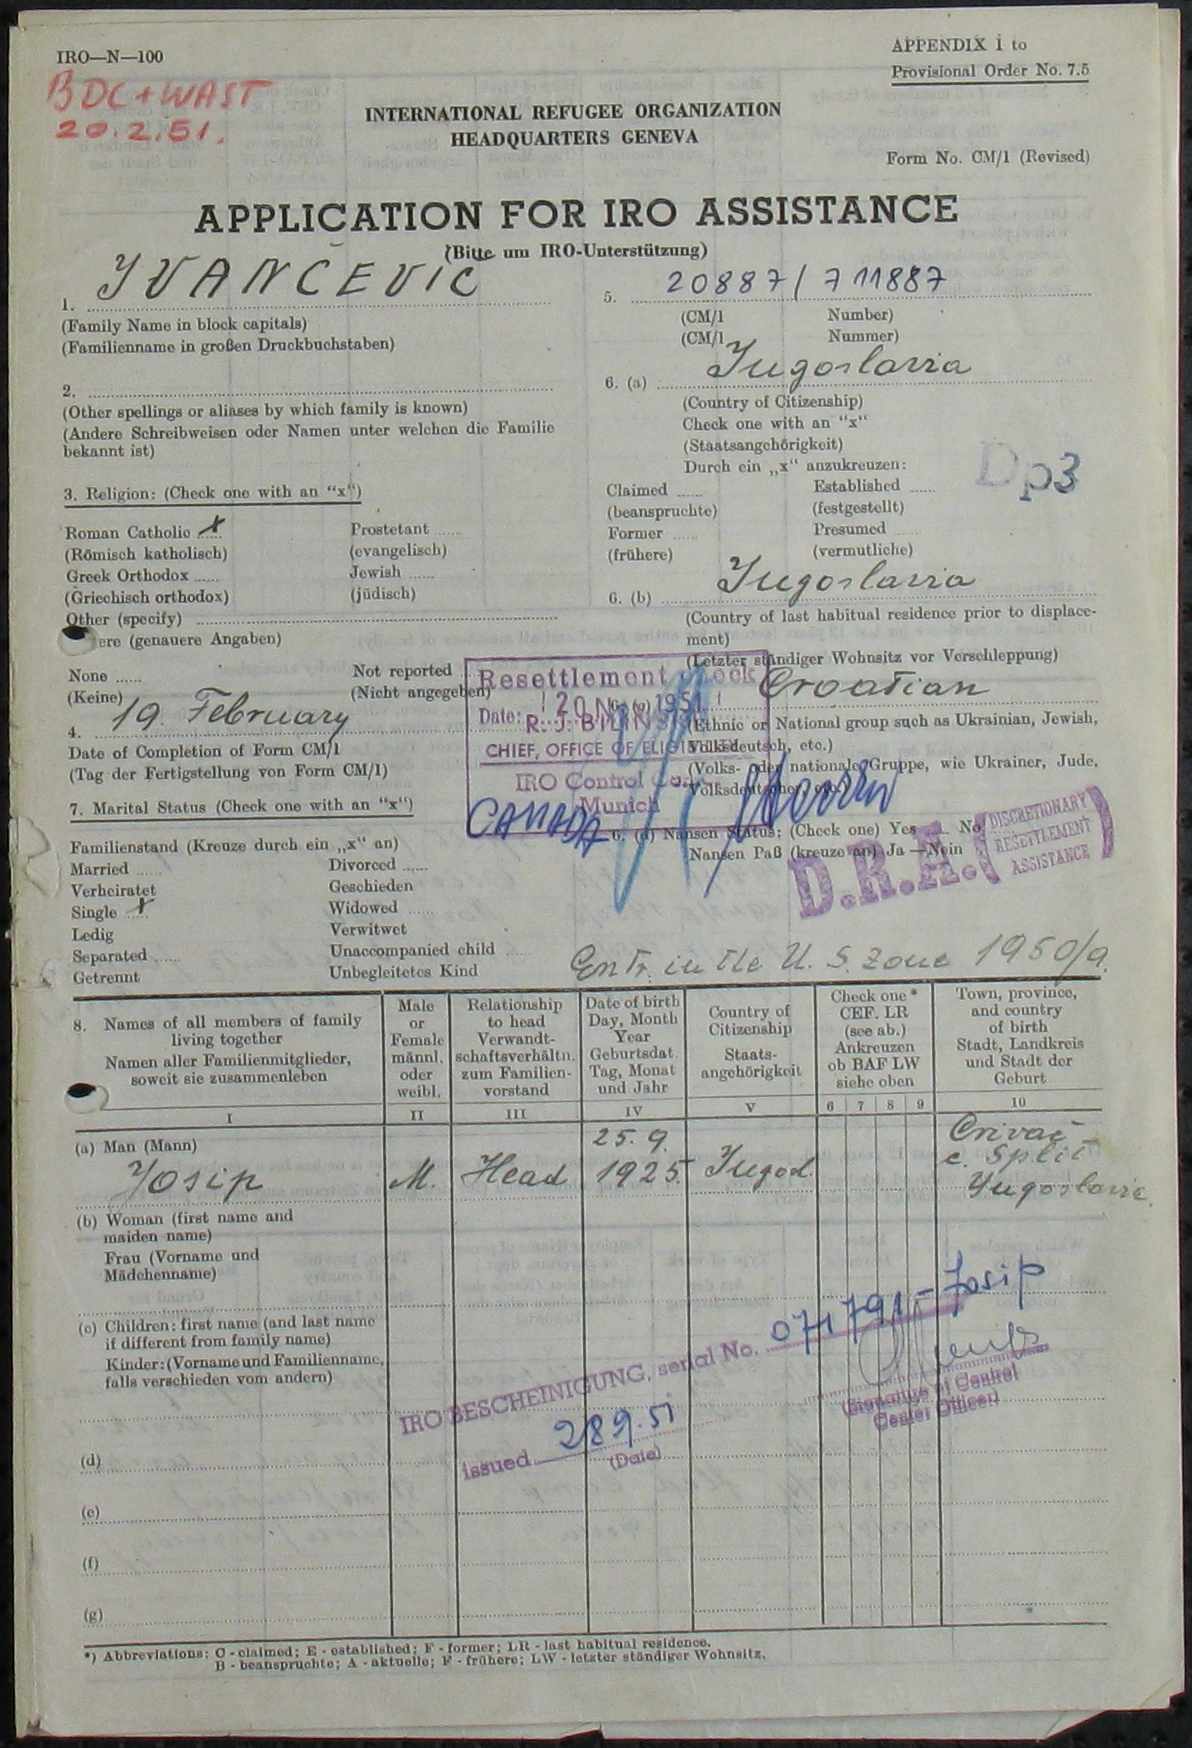 IRO—N—100
APPENDIX 1 to
Provisional Order No. 7.5
BDC + WAST
20.2.51.
INTERNATIONAL REFUGEE ORGANIZATION
HEADQUARTERS GENEVA
Form No. CM/1 (Revised)
APPLICATION FOR IRO ASSISTANCE
(Bitte um IRO-Unterstützung)
1. IVANČEVIC
(Family Name in block capitals)
(Familienname in großen Druckbuchstaben)
2.
(Other spellings or aliases by which family is known)
(Andere Schreibweisen oder Namen unter welchen die Familie
bekannt ist)
3. Religion: (Check one with an “x”)
Roman Catholic x
Prostetant
(Römisch katholisch)
(evangelisch)
Greek Orthodox
Jewish
(Griechisch orthodox)
(jüdisch)
Other (specify)
ere (genauere Angaben)
None
Not reported
(Keine)
(Nicht angegeben)
4. 19. February
Date of Completion of Form CM/1
(Tag der Fertigstellung von Form CM/1)
7. Marital Status (Check one with an “x”)
Familienstand (Kreuze durch ein „x“ an)
Married
Divorced
Verheiratet
Geschieden
Single x
Widowed
Ledig
Verwitwet
Separated
Unaccompanied child
Getrennt
Unbegleitetes Kind
5. 20887 / 711887
(CM/1 Number)
(CM/1 Nummer)
6. (a) Jugoslavia
(Country of Citizenship)
Check one with an “x”
(Staatsangehörigkeit)
Durch ein „x“ anzukreuzen:
Dp3
Claimed
Established
(beanspruchte)
(festgestellt)
Former
Presumed
(frühere)
(vermutliche)
6. (b) Jugoslavia
(Country of last habitual residence prior to displace-
ment)
(Letzter ständiger Wohnsitz vor Verschleppung)
Croatian
(Ethnic or National group such as Ukrainian, Jewish,
Volksdeutsch, etc.)
(Volks- oder nationale Gruppe, wie Ukrainer, Jude,
Volksdeutscher, etc.)
6. (d) Nansen Status: (Check one) Yes No
Nansen Paß (kreuze an) Ja — Nein
Resettlement
Date: 20 1951
CHIEF, OFFICE OF
IRO Control
Munich
CANADA
D.R.A. (DISCRETIONARY
RESETTLEMENT
ASSISTANCE)
Entr. in the U.S. zone 1950/9.
8. Names of all members of family
living together
Namen aller Familienmitglieder,
soweit sie zusammenleben
Male
or
Female
männl.
oder
weibl.
Relationship
to head
Verwandt-
schaftsverhältn.
zum Familien-
vorstand
Date of birth
Day, Month
Year
Geburtsdat.
Tag, Monat
und Jahr
Country of
Citizenship
Staats-
angehörigkeit
Check one *
CEF. LR
(see ab.)
Ankreuzen
ob BAF LW
siehe oben
Town, province,
and country
of birth
Stadt, Landkreis
und Stadt der
Geburt
I II III IV V 6 7 8 9 10
(a) Man (Mann)
Josip M. Head 25.9. 1925 Jugosl. Crivac
c. Split
Yugoslavia
(b) Woman (first name and
maiden name)
Frau (Vorname und
Mädchenname)
(c) Children: first name (and last name
if different from family name)
Kinder: (Vorname und Familienname,
falls verschieden vom andern)
IRO BESCHEINIGUNG, serial No. 071791 - Josip
issued 28 9. 51
(Date)
(Signature of Control
Center Officer)
(d)
(e)
(f)
(g)
*) Abbreviations: C - claimed; E - established; F - former; LR - last habitual residence.
B - beanspruchte; A - aktuelle; F - frühere; LW - letzter ständiger Wohnsitz.